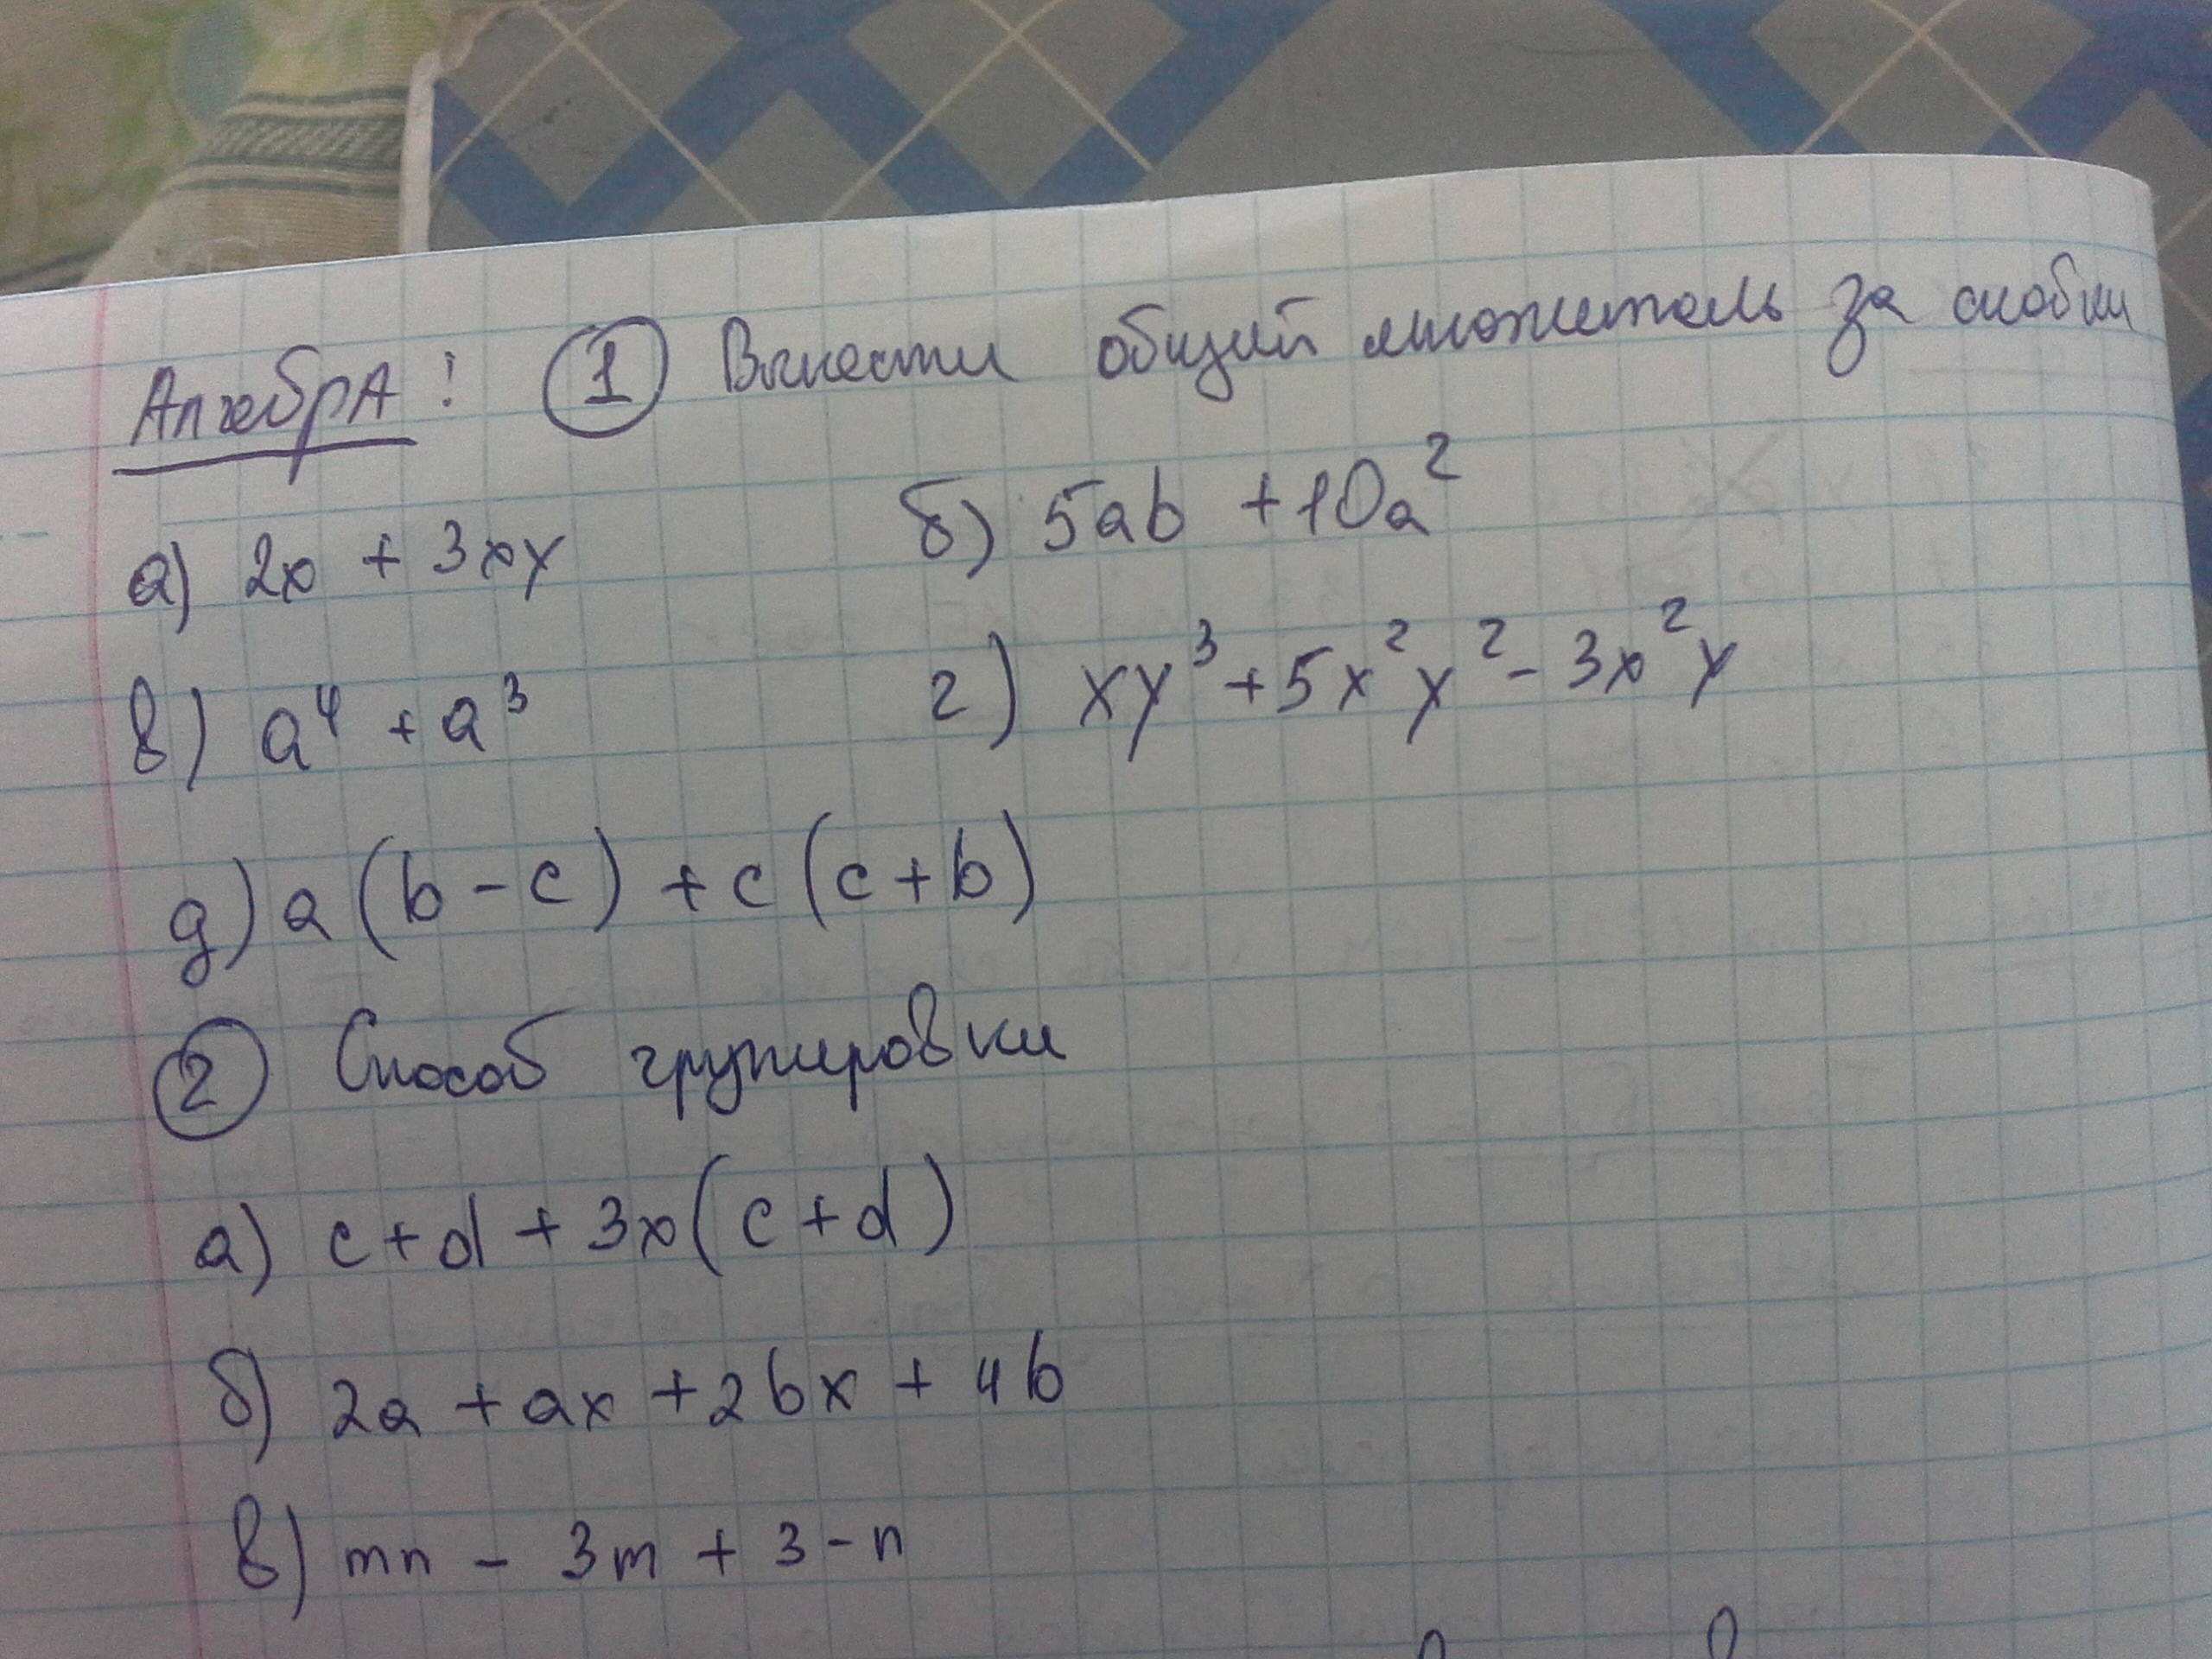 АлгебрА: ① Вынести общий множитель за скобки
а) 2x + 3xy б) 5ab + 10a²
в) a⁴ + a³ г) xy³ + 5x²y² - 3x²y
д) a(b - c) + c(c + b)
② Способ групировки
а) c + d + 3x(c + d)
б) 2a + ax + 2bx + 4b
в) mn - 3m + 3 - n